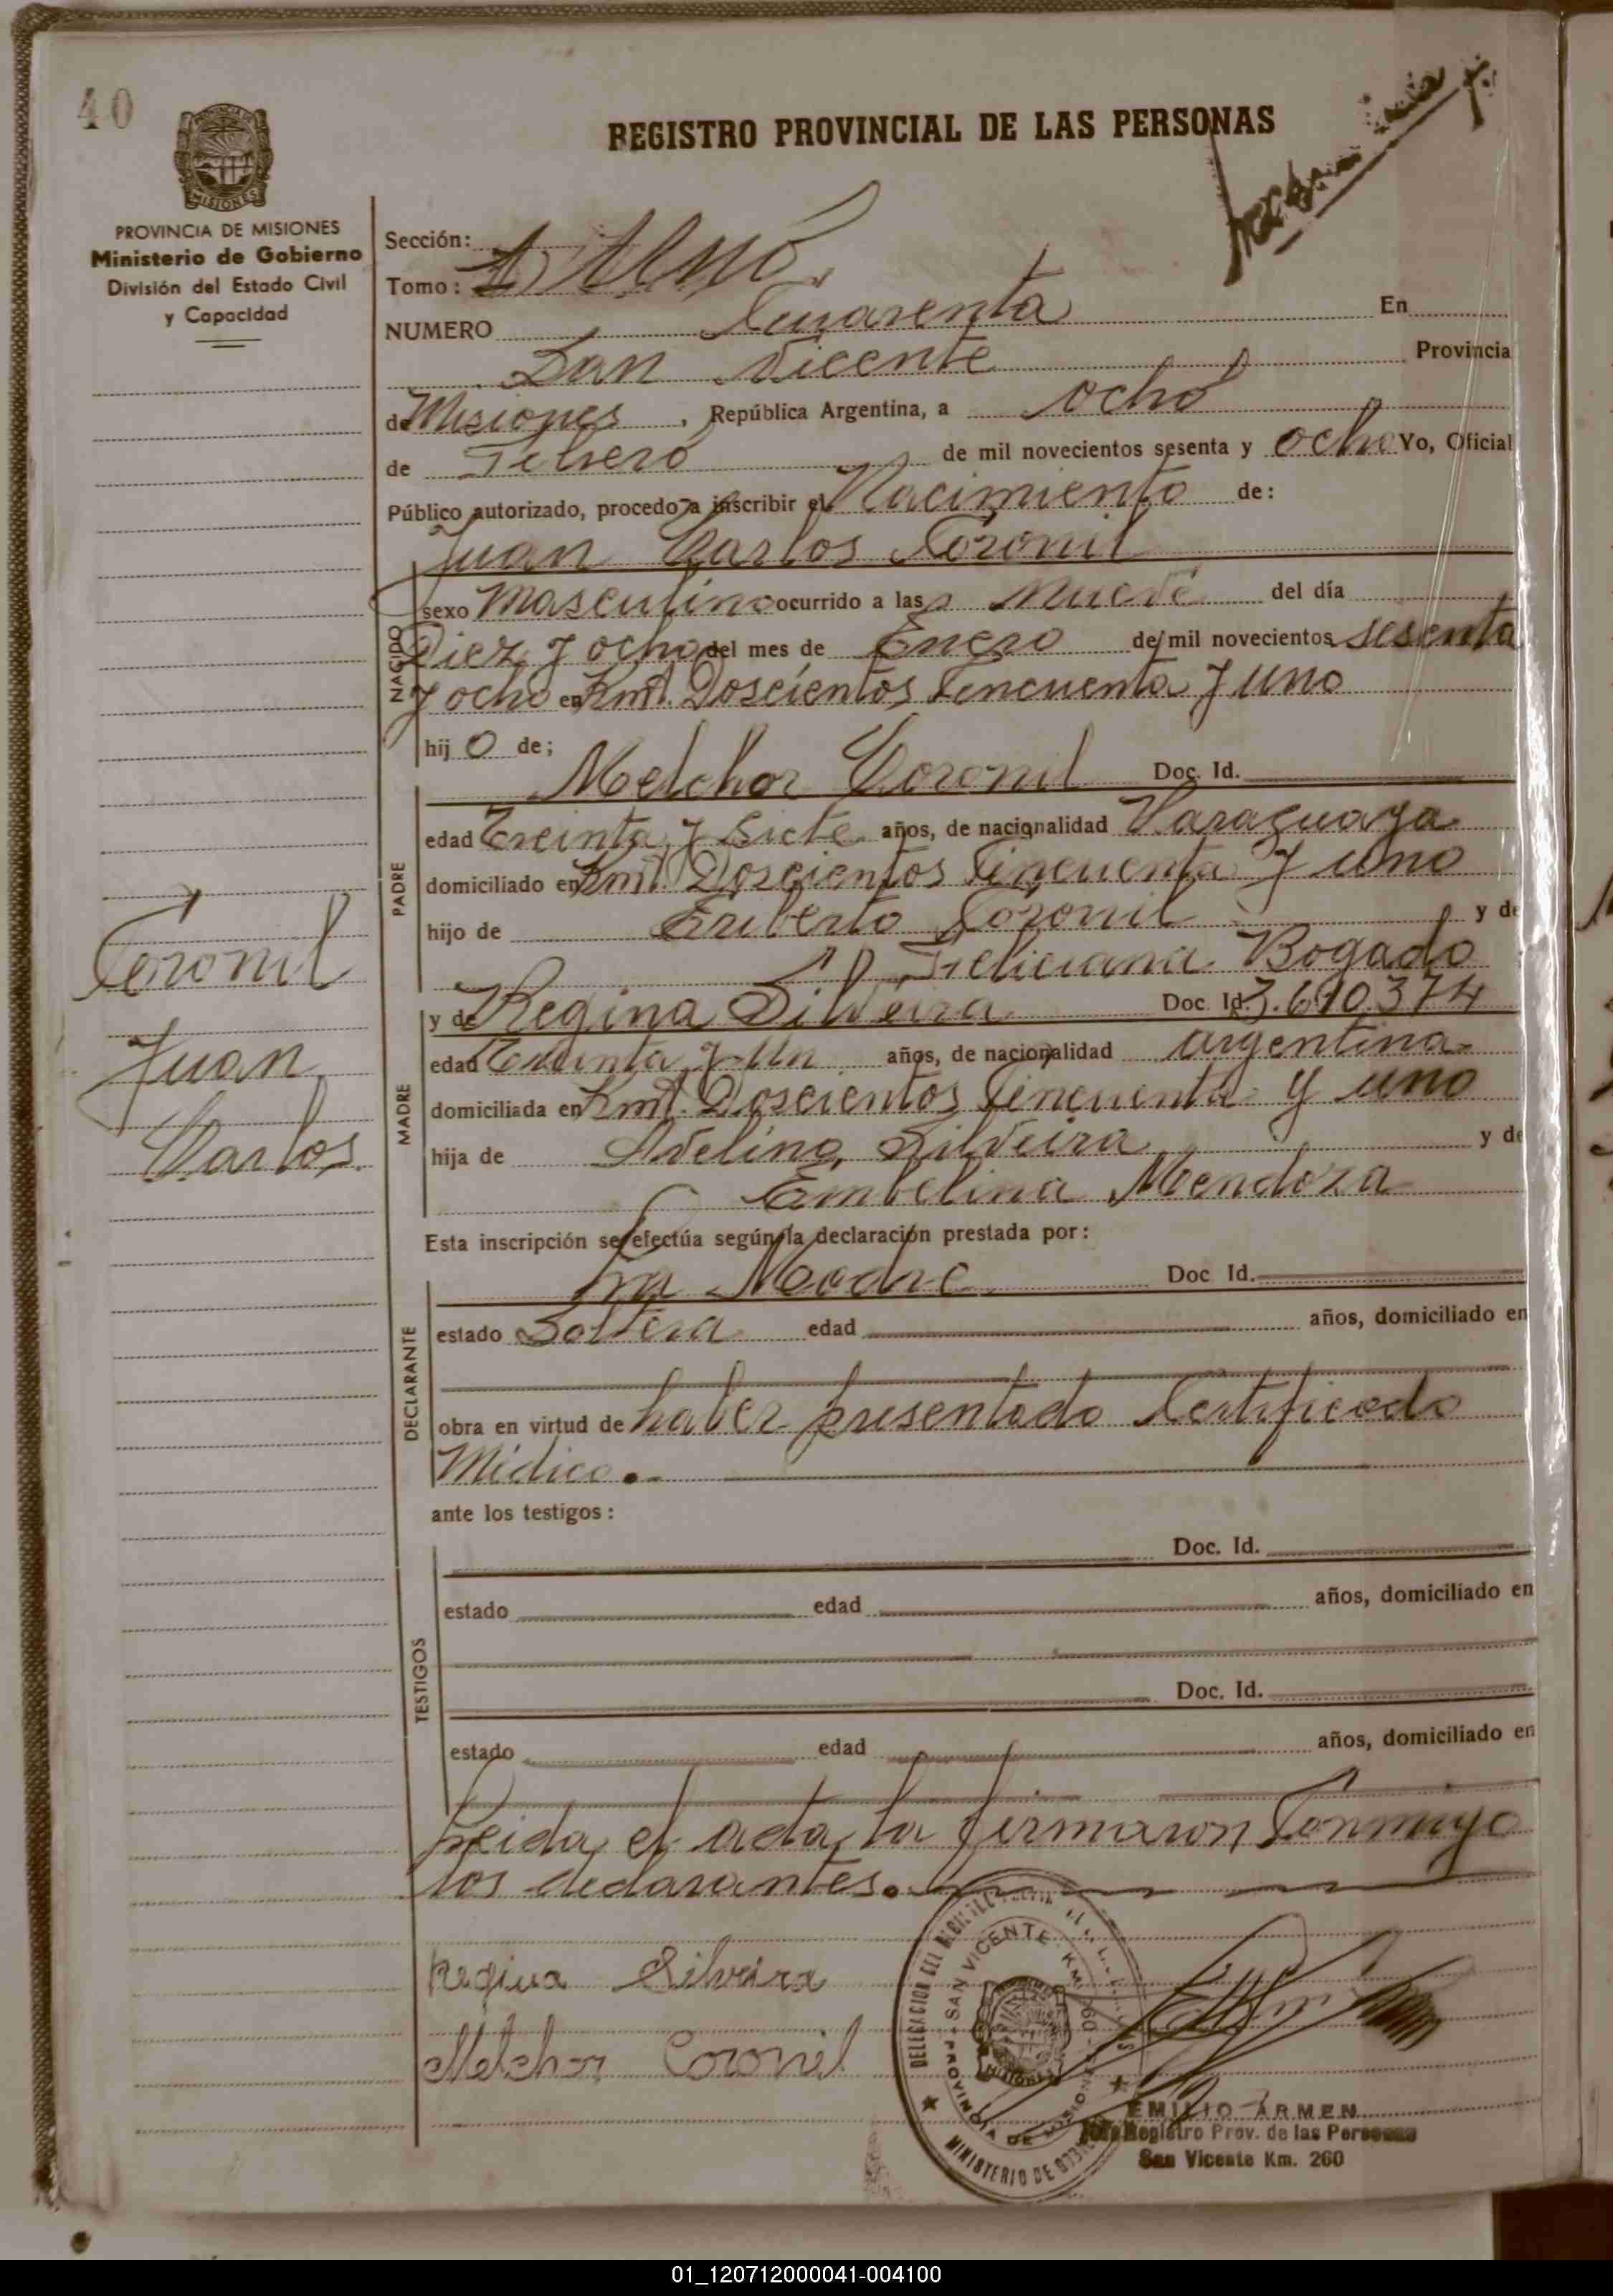 40
REGISTRO PROVINCIAL DE LAS PERSONAS
MISIONES
PROVINCIA DE MISIONES
Ministerio de Gobierno
División del Estado Civil
y Capacidad
Sección:
Tomo:
NUMERO Cuarenta En
San Vicente Provincia
de Misiones, República Argentina, a ocho
de Febrero de mil novecientos sesenta y ocho Yo, Oficial
Público autorizado, procedo a inscribir el Nacimiento de:
Juan Carlos Coronil
NACIDO
sexo Masculino ocurrido a las nueve del día
Diez y ocho del mes de Enero de mil novecientos sesenta
y ocho en Kmt. Doscientos Cincuenta y uno
hij o de;
Melchor Coronil Doc. Id.
PADRE
edad Treinta y Siete años, de nacionalidad Paraguaya
domiciliado en Kmt. Doscientos Cincuenta y uno
hijo de Eriberto Coronil y de
Feliciana Bogado
y de Regina Silveira Doc. Id. 3.610.374
MADRE
edad Treinta y Un años, de nacionalidad argentina
domiciliada en Kmt. Doscientos Cincuenta y uno
hija de Avelino Silveira y de
Embelina Mendoza
Esta inscripción se efectúa según la declaración prestada por:
La Madre Doc Id.
DECLARANTE
estado Soltera edad años, domiciliado en
obra en virtud de haber presentado Certificado
Médico.
ante los testigos:
TESTIGOS
Doc. Id.
estado edad años, domiciliado en
Doc. Id.
estado edad años, domiciliado en
Leida el acta, la firmaron Conmigo
los declarantes.
Coronil
Juan
Carlos
Regina Silveira
Melchor Coronil
SAN VICENTE
PROVINCIA DE MISIONES
MINISTERIO DE
EMILIO ARMEN
Registro Prov. de las Personas
San Vicente Km. 260
01_120712000041-004100